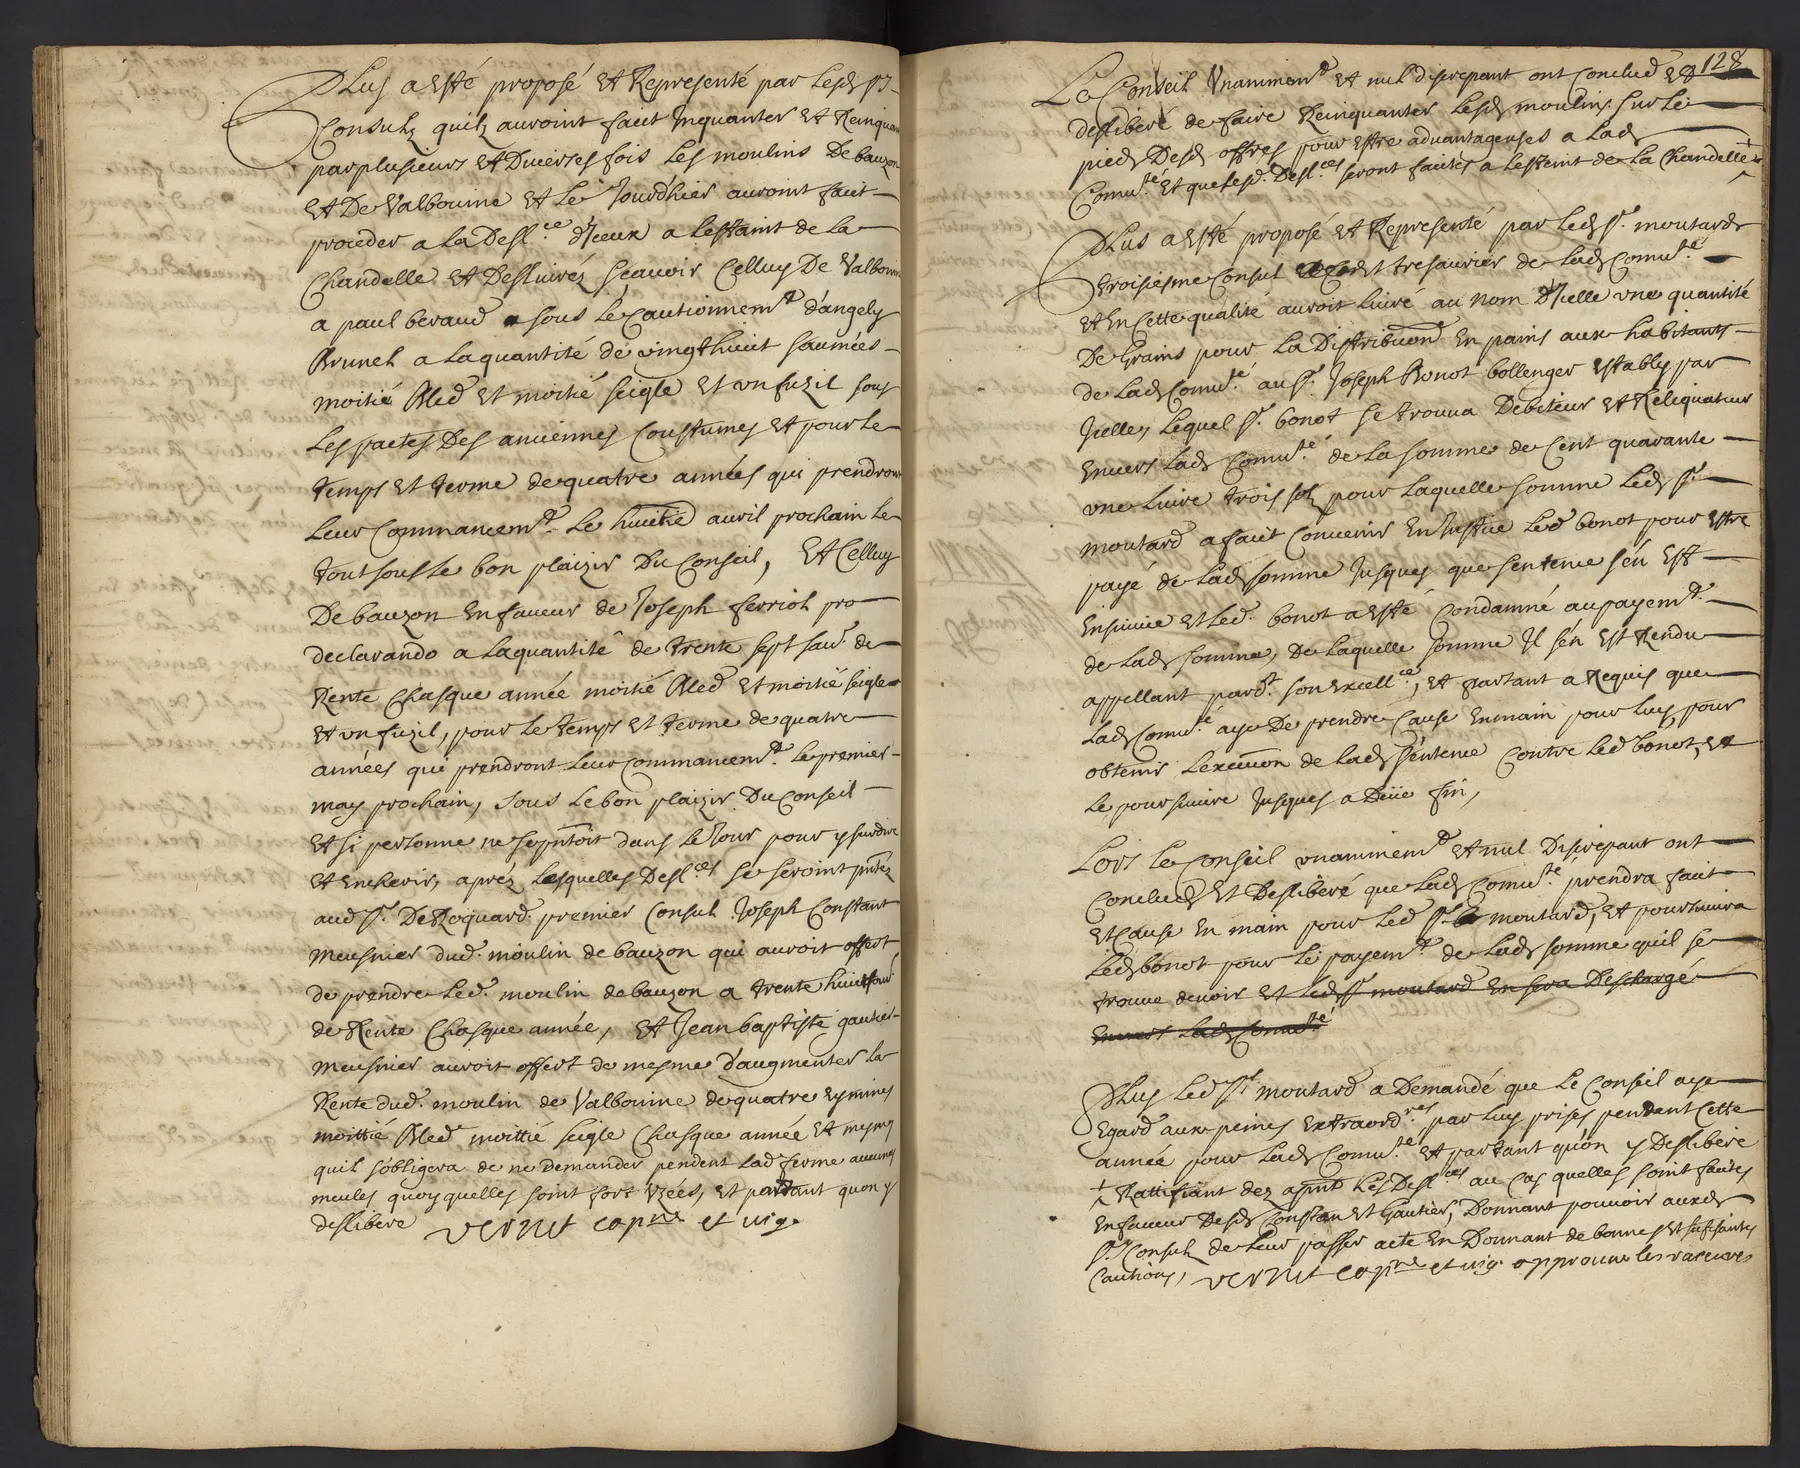 Plus a esté proposé et representé par lesd srs
Consulz quilz auroint faict Inquanter et Reinquan
par plusieurs et Diverses fois Les moulins De bauzon
et De Valbouine et Le Jourdhier auroint faict
proceder a La Desl.ce d'Iceux a lestaint de la
Chandelle et Desliuréz sçauoir Celluy De Valbouine
a paul beraud sous le Cautionnem.t d'angely
Brunel a la quantité de vingthuict saumées
moitié Bled et moitié seigle et un fuzil sous
Les pactes Des anciennes Coustumes et pour le
temps et terme de quatre années qui prendront
Leur Commancem.t le huictie auril prochain le
tout sous le bon plaizir Du Conseil, et Celluy
De bauzon en faueur de Joseph ferriol pro
declarando a la quantité de trente sept sau.s de
Rente Chasque année moitié Bled et moitié seigle
et un fuzil, pour le temps et terme de quatre
années qui prendront leur Commancem.t le premier
may prochain, sous le bon plaizir Du Conseil
et si personne ne se pntoit dans le Jour pour y surdire
et encherir, apréz lesquelles Desl.ces se seroint pntéz
aud sr. De Roquard premier Consul Joseph Constant
meusnier dud. moulin de bauzon qui auroit offert
de prendre led. moulin de bauzon a trente huict sau.
de Rente Chasque année, et Jean baptiste gautier
meusnier auroit offert de mesme d'augmenter la
Rente dud. moulin de Valbouine de quatre eymines
moittié Bled moittié seigle Chasque année et mesmes
quil s'obligera de ne Demander pendent lad ferme aucunes
meules quoy quelles soint fort uzées, et partant quon y
deslibere vernet cap.ne et vig.
128
Le Conseil vnanimem.t et nul discrepant ont Conclud et
deslibéré de faire Reinquanter lesd moulins sur le
pied Desd offres pour estre aduantageuses a lad
Comu.té et que lesd. Desl.ces seront faites a lesteint de la Chandelle +
Plus a esté proposé et Representé par led sr. moutard
troisiesme Consul et tresaurier de lad Comu.té
et en Cette qualité auroit liuré au nom d'Icelle une quantité
De Grains pour la Distribuon en pains aux habitants
de lad Comu.té au sr. Joseph Bonot bollenger estably par
Icelle, lequel sr. bonot se trouua Debiteur et Reliquateur
enuers lad Comu.té de la somme de Cent quarante
une liure trois solz pour laquelle somme led sr.
moutard a faict Conuenir en Justice led bonot pour estre
payé de lad somme Jusques que sentence s'en est
ensuiuie et led. bonot a esté Condamné au payem.t
de lad somme, De laquelle somme Il s'en est Rendu
appellant pard.t son excell.ce, et partant a Requis que
lad Comu.té aye De prendre Cause en main pour luy, pour
obtenir l'execuon de lad sentence Contre led bonot, et
le poursuiure Jusques a Deüe fin,
Lors le Conseil vnanimem.t et nul Discrepant ont
Conclud et Desliberé que lad Comu.té prendra fait
et Cause en main pour led sr. moutard, et poursuiura
led bonot pour le payem.t de lad somme quil se
trouue deuoir et led sr moutard en sera Deschargé
enuers lad Comu.té
Plus led sr moutard a Demandé que le Conseil aye
Egard aux peines extraord.res par luy prises pendent Cette
année pour lad Comu.té et partant qu'on y Deslibere
+ Rattifiant dez apnt les Desl.ces au Cas quelles soint faites
en faueur Desd Constan et Gautier, Donnant pouuoir auxd
srs Consulz de leur passer acte en Donnant de bonnes et suffisantes
Cautions, vernet cap.ne et vig. approuue les rasures